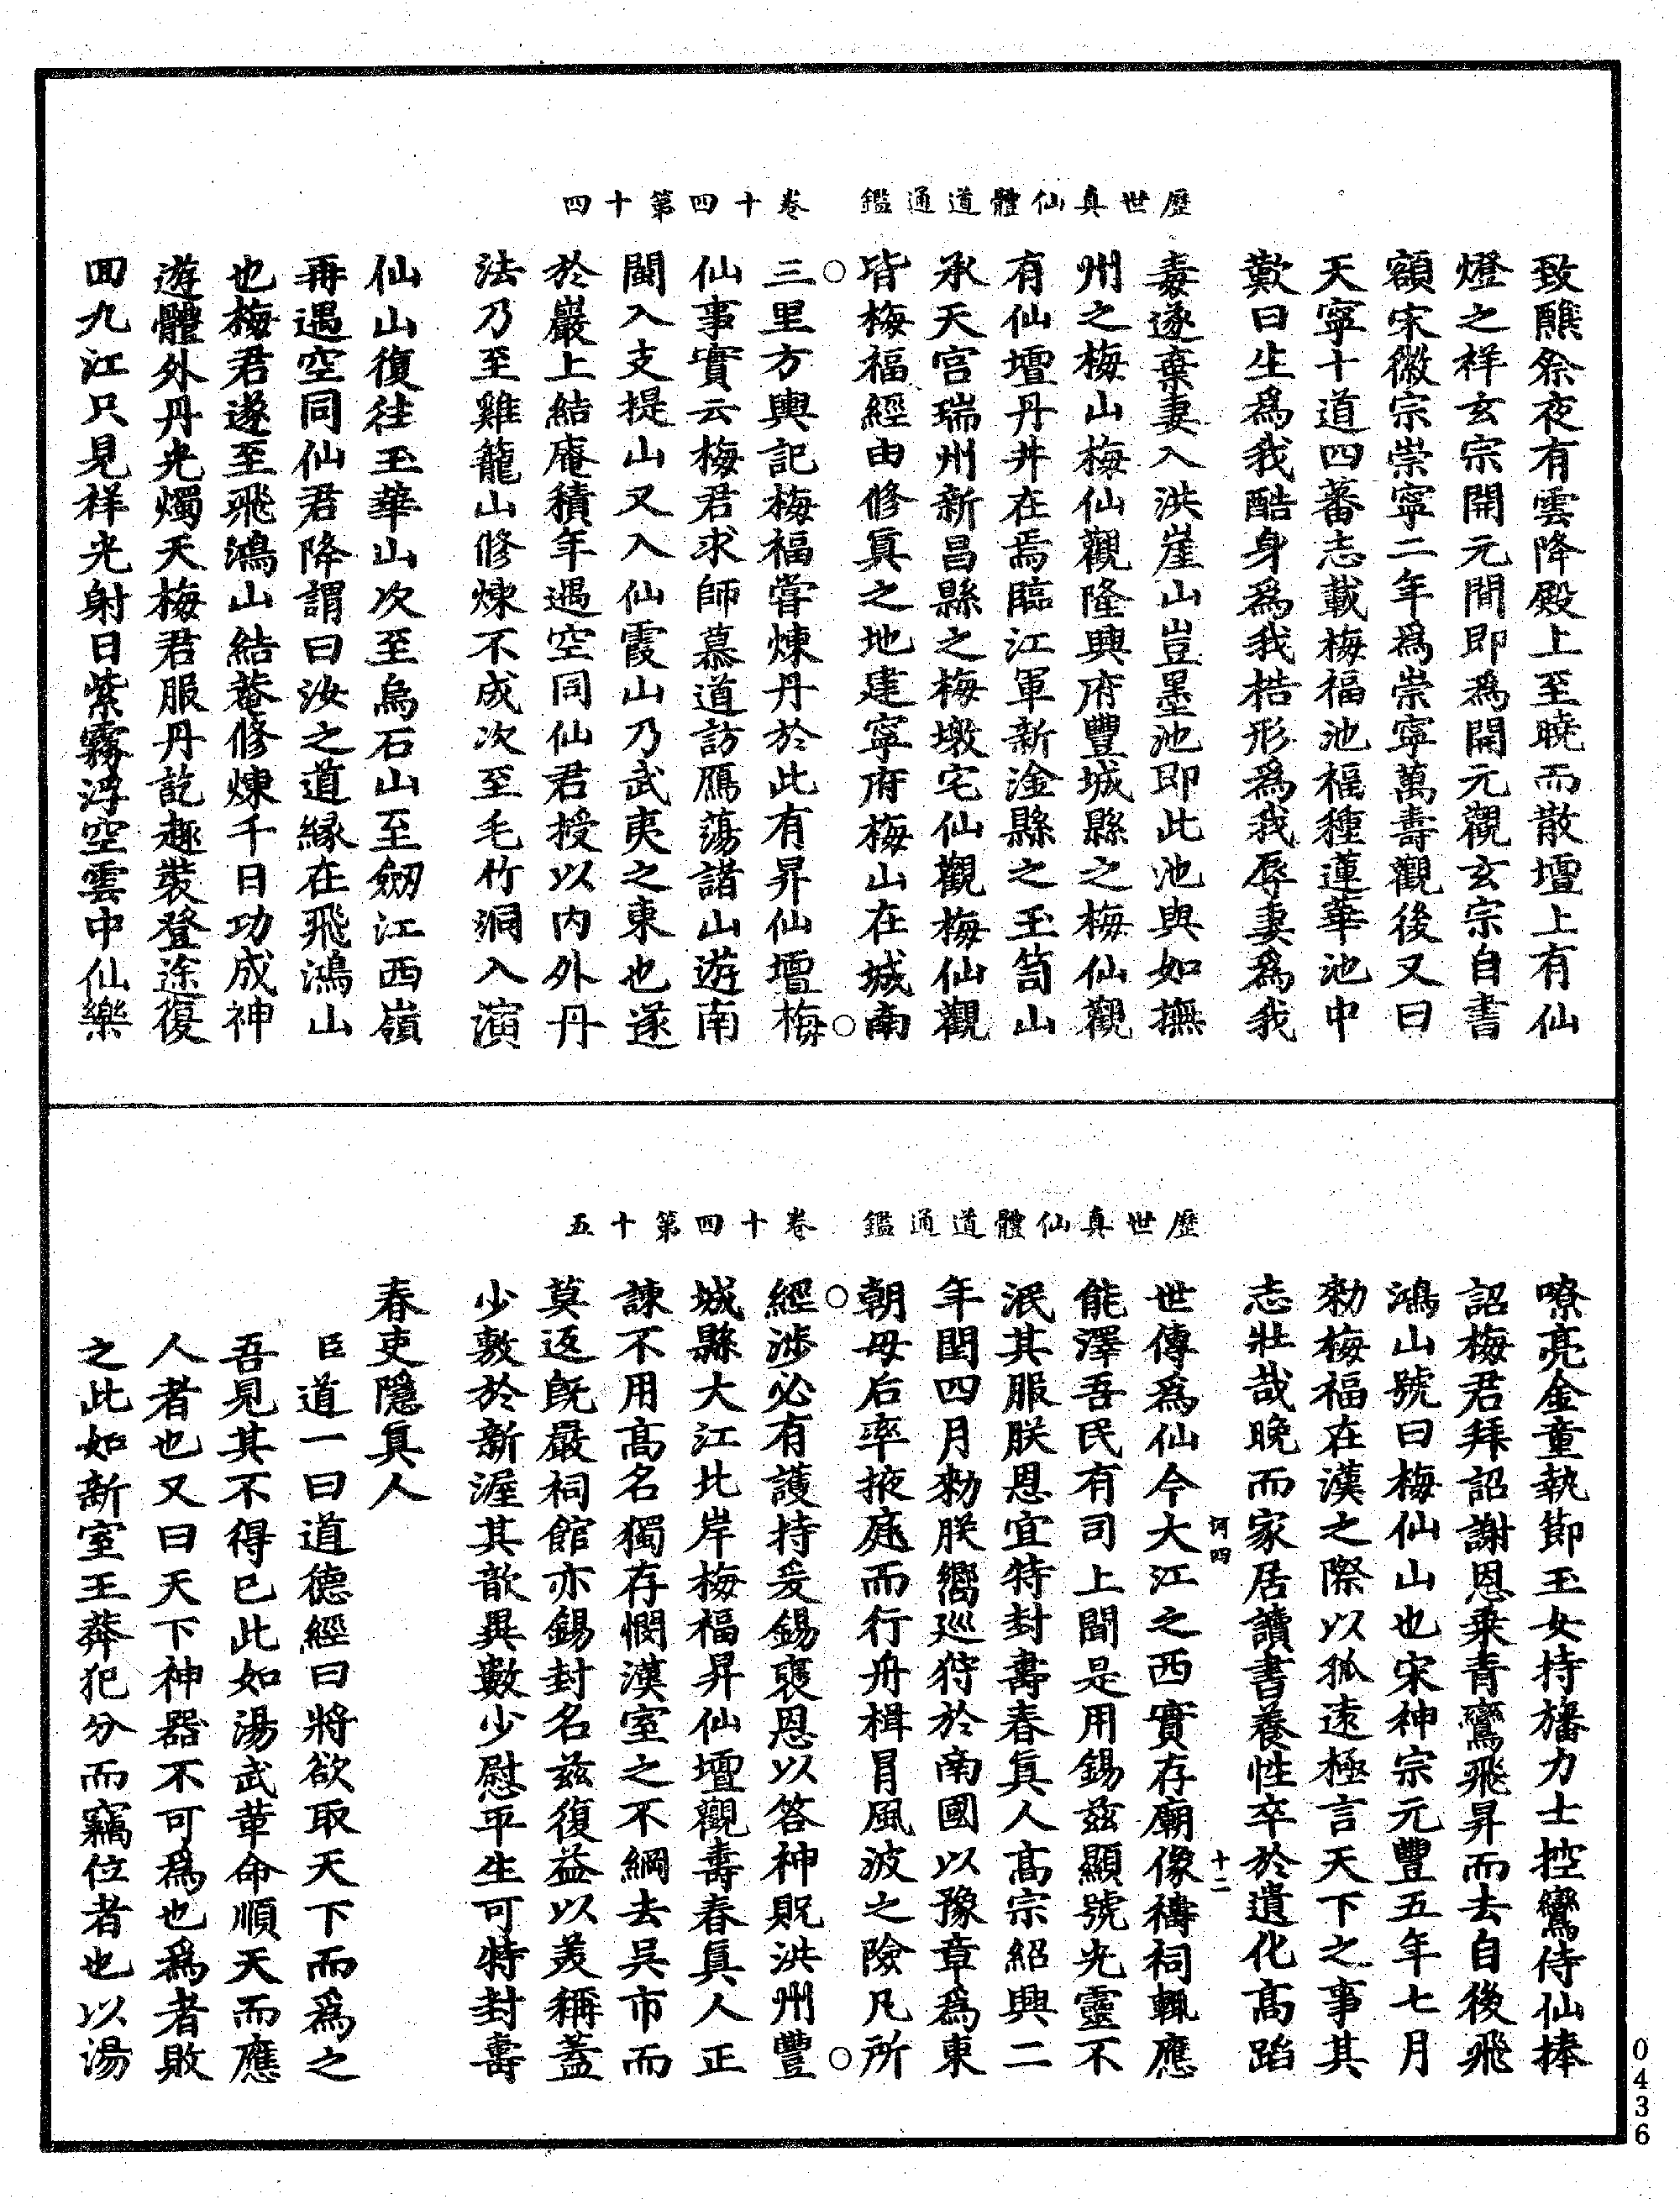 歷世真仙體道通鑑　卷十四第十四
致醮祭夜有雲降殿上至曉而散壇上有仙
燈之祥玄宗開元間即爲開元觀玄宗自書
額宋徽宗崇寧二年爲崇寧萬壽觀後又曰
天寧十道四蕃志載梅福池福種蓮華池中
歎曰生爲我酷身爲我梏形爲我辱妻爲我
毒遂棄妻入洪崖山豈墨池即此池與如撫
州之梅山梅仙觀隆興府豐城縣之梅仙觀
有仙壇丹井在焉臨江軍新淦縣之玉笥山
承天宫瑞州新昌縣之梅墩宅仙觀梅仙觀
皆梅福經由修真之地建寧府梅山在城南
三里方輿記梅福嘗煉丹於此有昇仙壇梅
仙事實云梅君求師慕道訪鴈蕩諸山遊南
閩入支提山又入仙霞山乃武夷之東也遂
於巖上結庵積年遇空同仙君授以内外丹
法乃至雞籠山修煉不成次至毛竹洞入演
仙山復往玉華山次至烏石山至劒江西嶺
再遇空同仙君降謂曰汝之道緣在飛鴻山
也梅君遂至飛鴻山結菴修煉千日功成神
遊體外丹光燭天梅君服丹訖趣裝登途復
回九江只見祥光射日紫霧浮空雲中仙樂
歷世真仙體道通鑑　卷十四第十五
嘹亮金童執節玉女持旛力士控鸞侍仙捧
詔梅君拜詔謝恩乗青鸞飛昇而去自後飛
鴻山號曰梅仙山也宋神宗元豐五年七月
勑梅福在漢之際以孤遠極言天下之事其
志壯哉晚而家居讀書養性卒於遺化高蹈
訶四　十二
世傳爲仙今大江之西實存廟像禱祠輒應
能澤吾民有司上聞是用錫兹顯號光靈不
泯其服朕恩宜特封壽春真人高宗紹興二
年閏四月勑朕嚮廵狩於南國以豫章爲東
朝母后率掖庭而行舟楫冒風波之險凡所
經渉必有護持爰錫褒恩以答神貺洪州豐
城縣大江北岸梅福昇仙壇觀壽春真人正
諫不用高名獨存憫漢室之不綱去吳市而
莫返旣嚴祠館亦錫封名兹復益以美稱蓋
少敷於新渥其歆異數少慰平生可特封壽
春吏隱真人
臣道一曰道德經曰將欲取天下而爲之
吾見其不得已此如湯武革命順天而應
人者也又曰天下神器不可爲也爲者敗
之此如新室王莽犯分而竊位者也以湯
0436